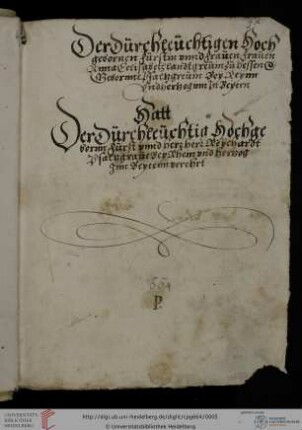 Der Dürchleüchtigen Hoch
gebornen Fürstin vnnd Frauen Frauen
Anna Elisabetz Landtgreuin zu Hessen
Geborne Pfaltzgreuin Bey Reynn
Vnd Hertzogin in Beyern
Hatt
Der Dürchleüchtig Hochge
born Fürst vnnd Herr Herr Reychardt
Pfaltzgraue Bey Rhein vnd Hertzog
Inn Beyernn verehrt
664
P.
UNIVERSITÄTS-
BIBLIOTHEK
HEIDELBERG
http://digi.ub.uni-heidelberg.de/diglit/cpg664/0005
© Universitätsbibliothek Heidelberg